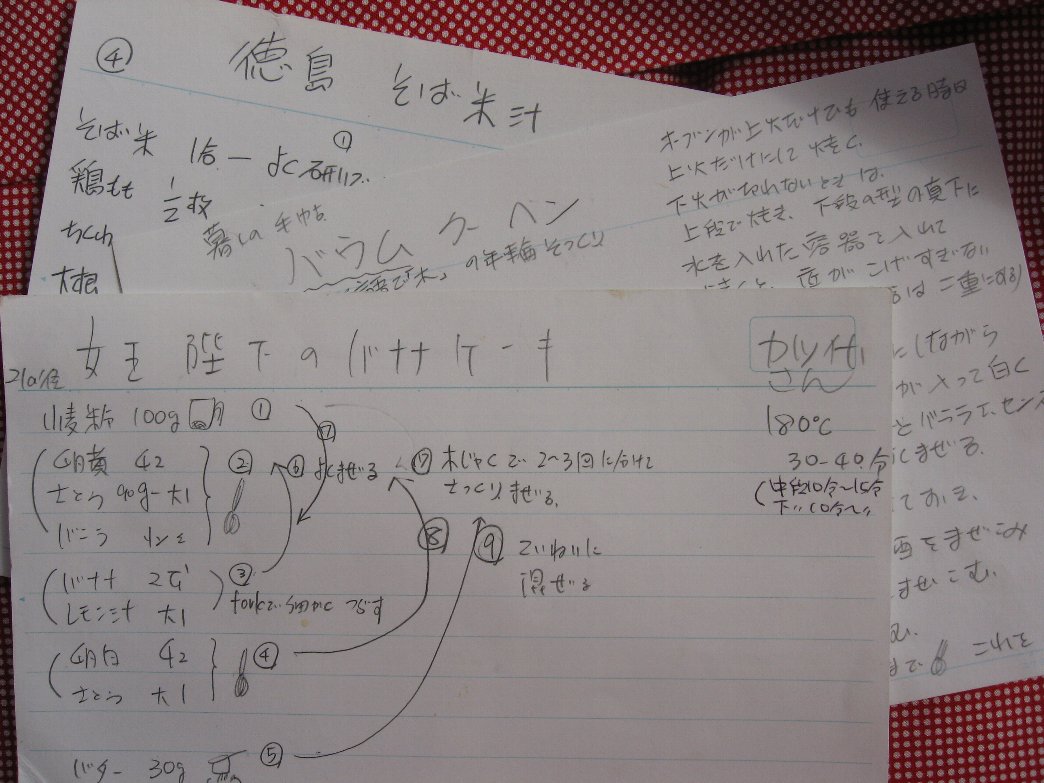 ④ 徳島 そば米汁
そば米 1合 ー よく研ぐ ①
鶏もも 1/2枚
ちくわ
大根
暮しの手帖
バウムクーヘン
の年輪そっくり
オーブンが上火だけでも使える時は
上火だけにして焼く。
下火が切れないときは、
上段で焼き、下段の型の真下に
水を入れた容器を入れて
底がこげすぎない
は二重にする)
にしながら
が入って白く
とバニラエッセンス
まぜる。
ておき、
をまぜこみ
まぜこむ。
む。
まで これを
女王陛下のバナナケーキ
カツ代さん
21cm径
小麦粉 100g ①
180℃
30-40分
(中段10分〜15分
下〃10分〜〃
卵黄 42
さとう 90g-大1
バニラ
②
⑥ よくまぜる
⑦
⑦ 木じゃくで 2〜3回に分けて
さっくりまぜる。
バナナ 2本
レモン汁 大1
③
forkで細かくつぶす
⑧
⑨ ていねいに
混ぜる
卵白 42
さとう 大1
④
バター 30g ⑤